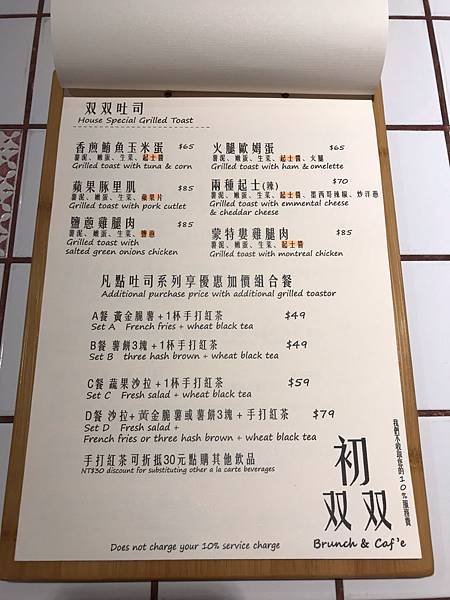 双双吐司
House Special Grilled Toast
香煎鮪魚玉米蛋 $65
薯泥、嫩蛋、生菜、起士醬
Grilled toast with tuna & corn
火腿歐姆蛋 $65
薯泥、嫩蛋、生菜、起士醬、火腿
Grilled toast with ham & omelette
蘋果豚里肌 $85
薯泥、嫩蛋、生菜、蘋果片
Grilled toast with pork cutlet
兩種起士(辣) $70
薯泥、嫩蛋、生菜、起士醬、墨西哥辣椒、炒洋蔥
Grilled toast with emmental cheese
& cheddar cheese
鹽蔥雞腿肉 $85
薯泥、嫩蛋、生菜、鹽蔥
Grilled toast with
salted green onions chicken
蒙特婁雞腿肉 $85
薯泥、嫩蛋、生菜、起士醬
Grilled toast with montreal chicken
凡點吐司系列享優惠加價組合餐
Additional purchase price with additional grilled toastor
A餐 黃金脆薯+1杯手打紅茶 $49
Set A French fries + wheat black tea
B餐 薯餅3塊+1杯手打紅茶 $49
Set B three hash brown + wheat black tea
C餐 蔬果沙拉+1杯手打紅茶 $59
Set C Fresh salad + wheat black tea
D餐 沙拉+黃金脆薯或薯餅3塊+手打紅茶 $79
Set D Fresh salad +
French fries or three hash brown + wheat black tea
手打紅茶可折抵30元點購其他飲品
NT$30 discount for substituting other a la carte beverages
我們不收取您的10%服務費
初
双双
Brunch & Caf'e
Does not charge your 10% service charge